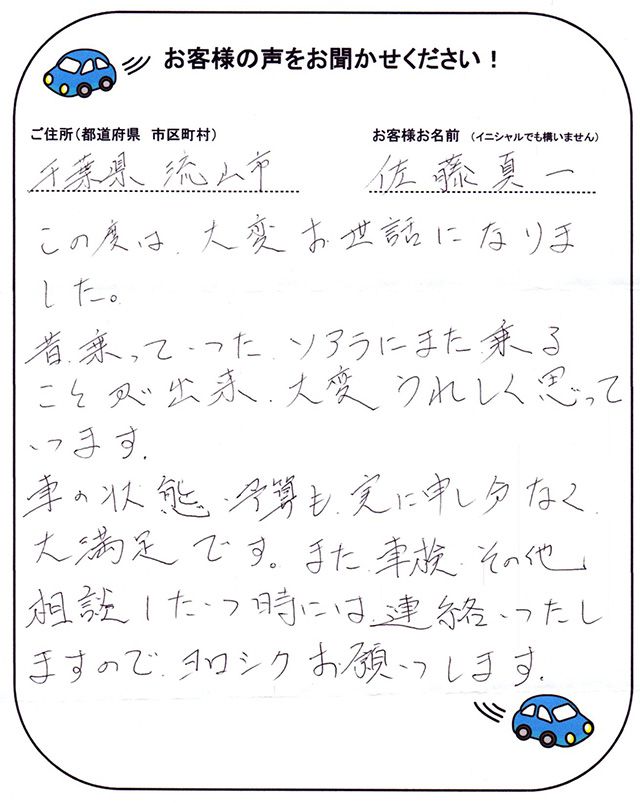 お客様の声をお聞かせください！
ご住所（都道府県　市区町村）
お客様お名前　（イニシャルでも構いません）
千葉県 流山市
佐藤真一
この度は、大変お世話になりま
した。
昔、乗っていた、ソアラにまた、乗る
ことが出来、大変うれしく思って
います。
車の状態、予算も、実に申し分なく、
大満足です。また、車検、その他、
相談したい時には、連絡いたし
ますので、ヨロシクお願いします。